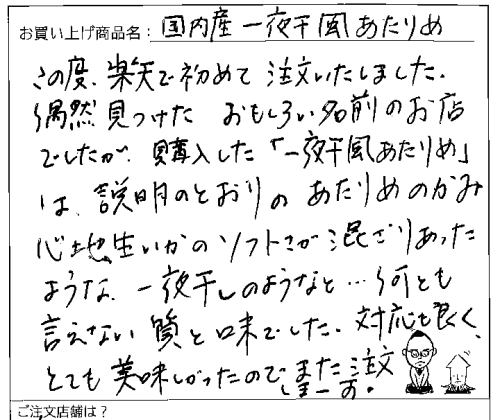 お買い上げ商品名：国内産一夜干風あたりめ
この度、楽天で初めて注文いたしました。
偶然見つけたおもしろい名前のお店
でしたが、購入した「一夜干風あたりめ」
は、説明のとおりのあたりめのかみ
心地生いかのソフトさが混ざりあった
ような、一夜干しのようなと…何とも
言えない質と味でした。対応も良く、
とても美味しかったので、また注文
します。
ご注文店舗は？